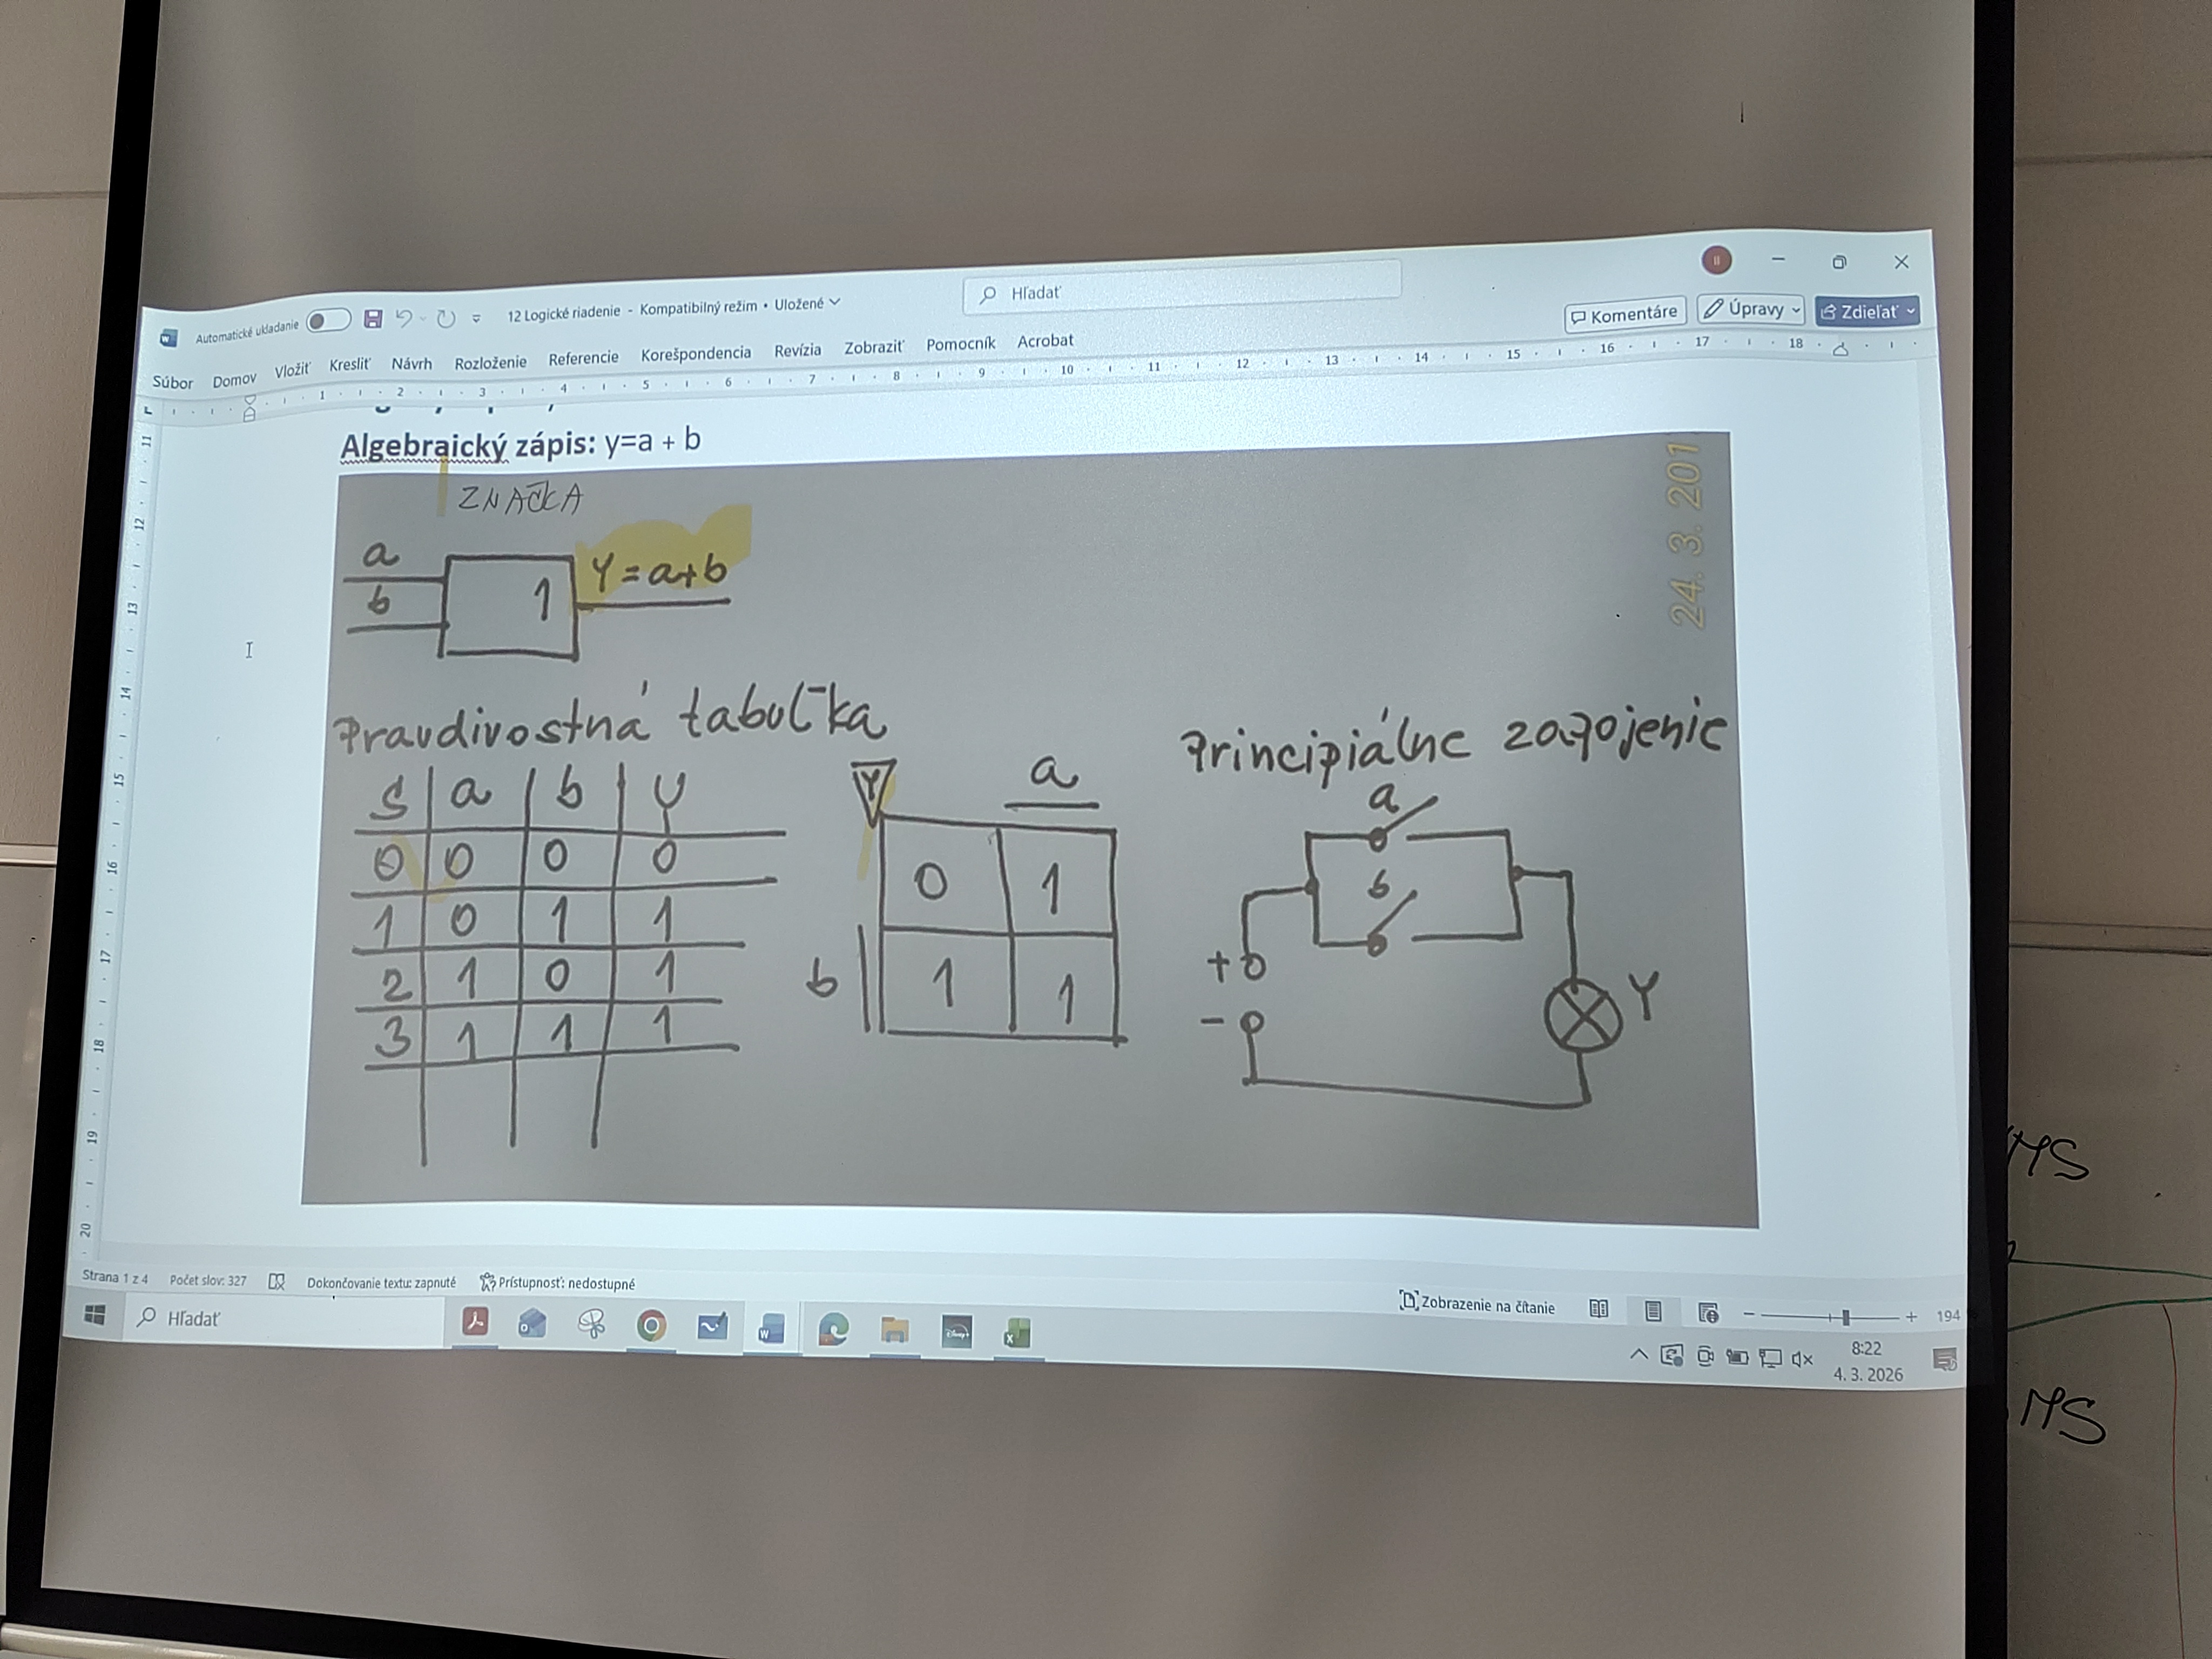 Automatické ukladanie
12 Logické riadenie - Kompatibilný režim • Uložené
Hľadať
Súbor Domov Vložiť Kresliť Návrh Rozloženie Referencie Korešpondencia Revízia Zobraziť Pomocník Acrobat
Komentáre Úpravy Zdieľať
1 2 3 4 5 6 7 8 9 10 11 12 13 14 15 16 17 18
11
12
13
14
15
16
17
18
19
20
Algebraický zápis: y=a + b
24. 3. 201
ZNAČKA
a
b
1
Y=a+b
Pravdivostná tabuľka
S a b Y
0 0 0 0
1 0 1 1
2 1 0 1
3 1 1 1
Y
a
0 1
b
1 1
Principiálne zapojenie
a
b
+
-
Y
MS
MS
Strana 1 z 4 Počet slov: 327 Dokončovanie textu: zapnuté Prístupnosť: nedostupné
Zobrazenie na čítanie
- + 194
Hľadať
8:22
4. 3. 2026